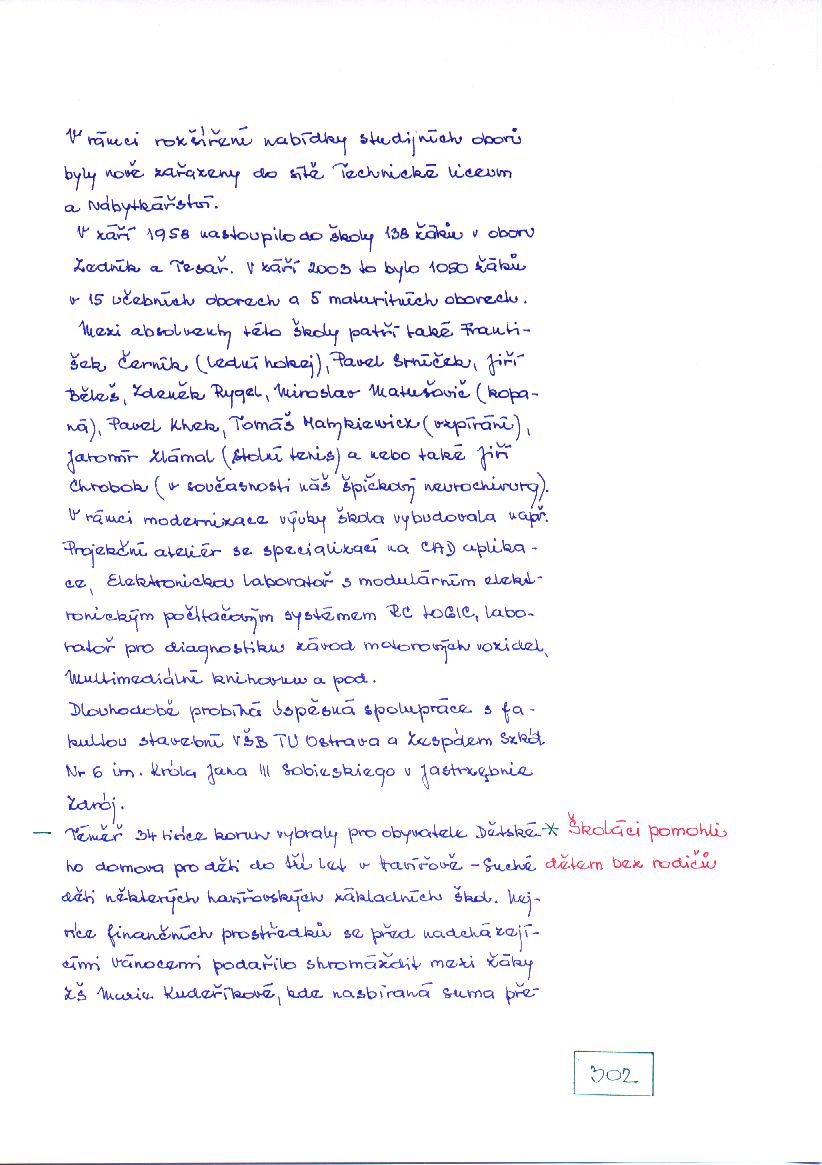 V rámci rozšíření nabídky studijních oborů
byly nově zařazeny do sítě Technické liceum
a Nábytkářství.
V září 1958 nastoupilo do školy 138 žáků v oboru
Zedník a Tesař. V září 2003 to bylo 1050 žáků
v 15 učebních oborech a 5 maturitních oborech.
Mezi absolventy této školy patří také Franti-
šek Černík (lední hokej), Pavel Srníček, Jiří
Běleš, Zdeněk Rygel, Miroslav Matušovič (kopa-
ná), Pavel Khek, Tomáš Matykiewicz (vzpírání),
Jaromír Zlámal (stolní tenis) a nebo také Jiří
Chrobok (v současnosti náš špičkový neurochirurg).
V rámci modernizace výuky škola vybudovala např.
Projekční ateliér se specializací na CAD aplika-
ce, Elektronickou laboratoř s modulárním elekt-
ronickým počítačovým systémem RC LOGIC, labo-
ratoř pro diagnostiku závod motorových vozidel,
Multimediální knihovnu a pod.
Dlouhodobě probíhá úspěšná spolupráce s fa-
kultou stavební VŠB TU Ostrava a Zespólem Szkół
Nr 6 im. Króla Jana III Sobieskiego v Jastrzębnie
Zdrój.
— Téměř 34 tisíce korun vybraly pro obyvatele Dětské- * Školáci pomohli
ho domova pro děti do tří let v Havířově - Suché dětem bez rodičů
děti některých havířovských základních škol. Nej-
více finančních prostředků se před nadcházejí-
cími vánocemi podařilo shromáždit mezi žáky
ZŠ Marie Kudeříkové, kde nasbíraná suma pře-
302